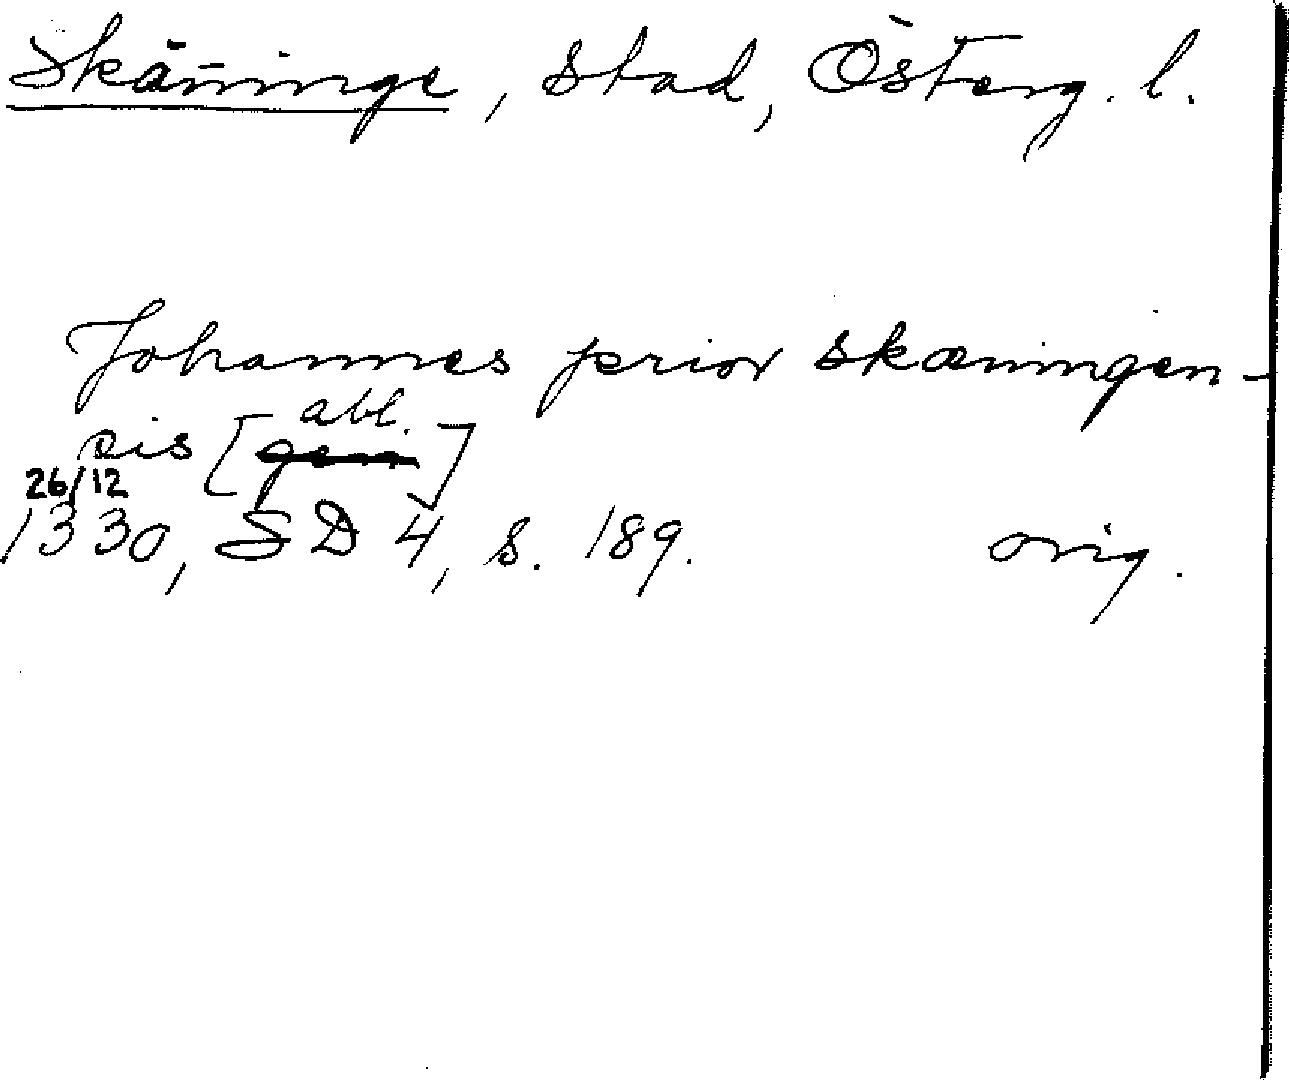 Skänninge, stad, Österg. l.
Johannes prior skæningen-
sis [abl.]
26/12
1330, SD 4, s. 189. orig.